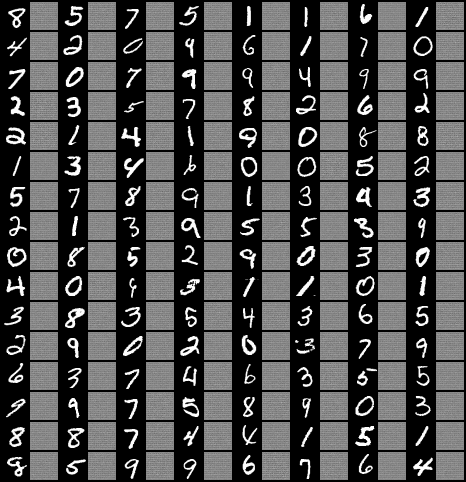 8 5 7 5 1 1 6 1
4 2 0 9 6 1 7 0
7 0 7 9 9 4 9 9
2 3 5 7 8 2 6 2
2 1 4 1 9 0 8 8
1 3 4 6 0 0 5 2
5 7 8 9 1 3 4 3
2 1 3 9 5 5 3 9
0 8 5 2 9 0 3 0
4 0 9 3 1 1 0 1
3 8 3 5 4 3 6 5
2 9 0 2 0 3 7 9
6 3 7 4 6 3 5 5
9 9 7 5 8 9 0 3
8 8 7 4 4 1 5 1
8 5 9 9 6 7 6 4